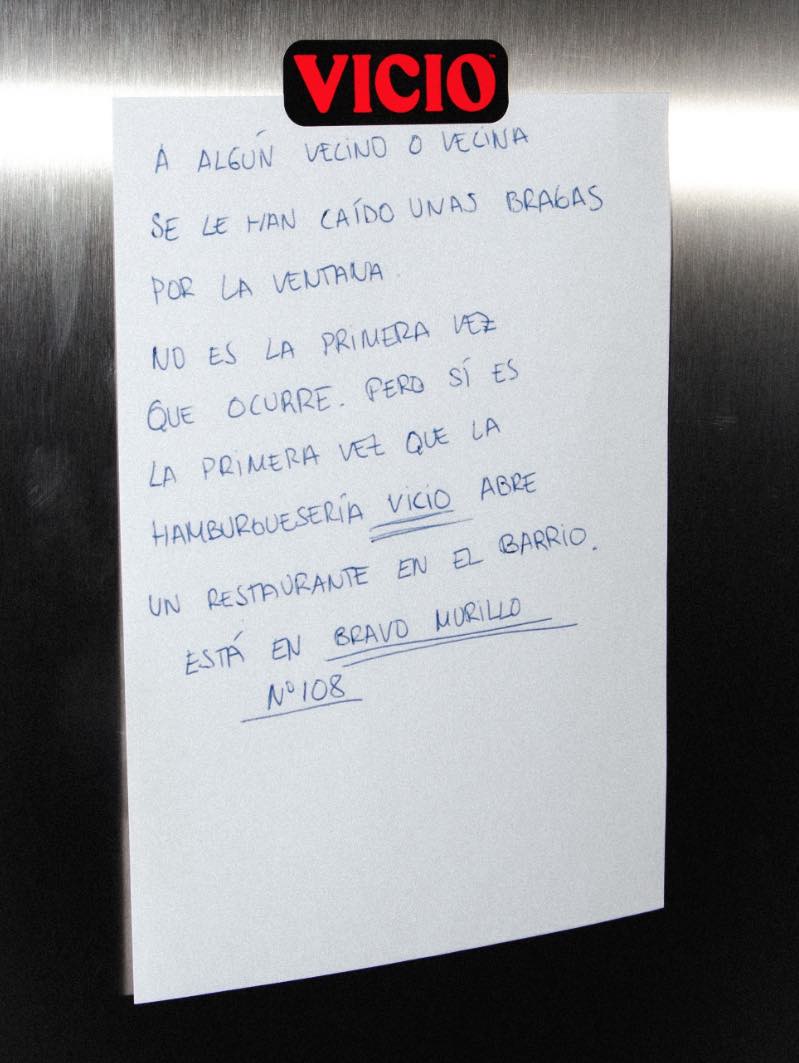 VICIO™
A ALGÚN VECINO O VECINA
SE LE HAN CAÍDO UNAS BRAGAS
POR LA VENTANA.
NO ES LA PRIMERA VEZ
QUE OCURRE. PERO SÍ ES
LA PRIMERA VEZ QUE LA
HAMBURGUESERÍA VICIO ABRE
UN RESTAURANTE EN EL BARRIO.
ESTÁ EN BRAVO MURILLO
Nº 108